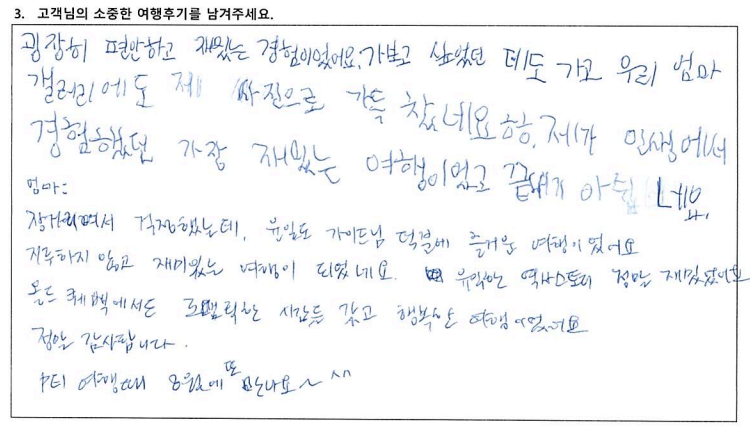 3. 고객님의 소중한 여행후기를 남겨주세요.
굉장히 편안하고 재밌는 경험이었어요. 가보고 싶었던 데도 가고 우리 엄마
갤러리에도 제 싸진으로 가득 찼네요 흠흠. 제가 인생에서
경험했던 가장 재밌는 여행이었고 끝내기 아쉽네요.
엄마:
장거리여서 걱정했는데, 윤일도 가이드님 덕분에 즐거운 여행이었어요
지루하지 않고 재미있는 여행이 되었네요. 유익한 역사스토리 정말 재밌었어요
올드 퀘벡에서도 로맨틱한 시간을 갖고 행복한 여행이었어요
정말 감사합니다.
여행때 8월에 또 만나요~ ^^